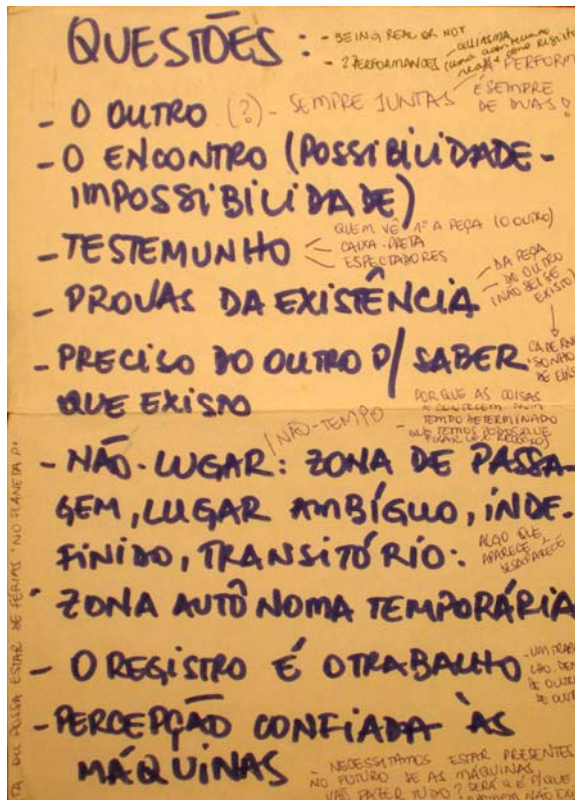 QUESTÕES :
- BEING REAL OR NOT
- 2 PERFORMANCES (uma
QUIASMA
A PERFORM
- O OUTRO (?) - SEMPRE JUNTAS
E SEMPRE
DE DUAS
- O ENCONTRO (POSSIBILIDADE-
IMPOSSIBILIDADE)
- TESTEMUNHO
QUEM VÊ 1º A PEÇA (O OUTRO)
CAIXA-PRETA
ESPECTADORES
- PROVAS DA EXISTÊNCIA
- DA PEÇA
- DO OUTRO
(NÃO SEI SE
EXISTO)
- PRECISO DO OUTRO P/ SABER
QUE EXISTO
POR QUE AS COISAS
ACONTECEM NUM
TEMPO DETERMINADO
/ NÃO-TEMPO
- NÃO-LUGAR: ZONA DE PASSA-
GEM, LUGAR AMBÍGUO, INDE-
FINIDO, TRANSITÓRIO:
ALGO QUE
APARECE E
DESAPARECE
ZONA AUTÔNOMA TEMPORÁRIA
- O REGISTRO É O TRABALHO
- PERCEPÇÃO CONFIADA ÀS
MÁQUINAS
- NECESSITAMOS ESTAR PRESENTES
NO FUTURO SE AS MÁQUINAS
VÃO FAZER TUDO? SERÁ QUE O QUE
POSSA ESTAR DE FÉRIAS NO PLANETA